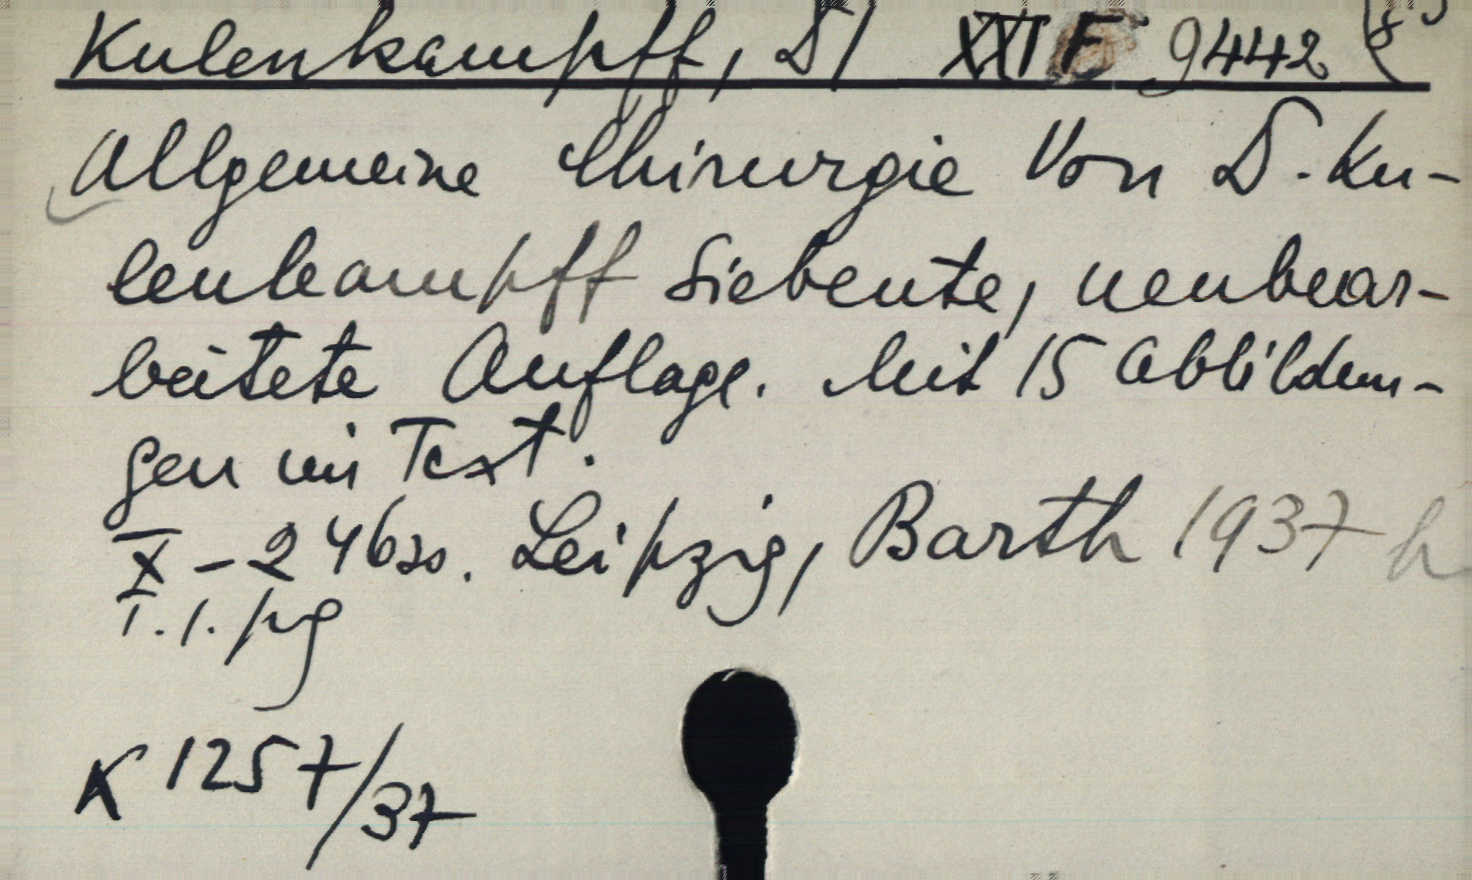 Kulenkampff, D/ XXI F 9442
Allgemeine Chirurgie Von D. Ku-
lenkampff Siebente, neubear-
beitete Auflage. Mit 15 Abbildun-
gen im Text.
X - 246 ss. Leipzig, Barth 1937
K 1257/37